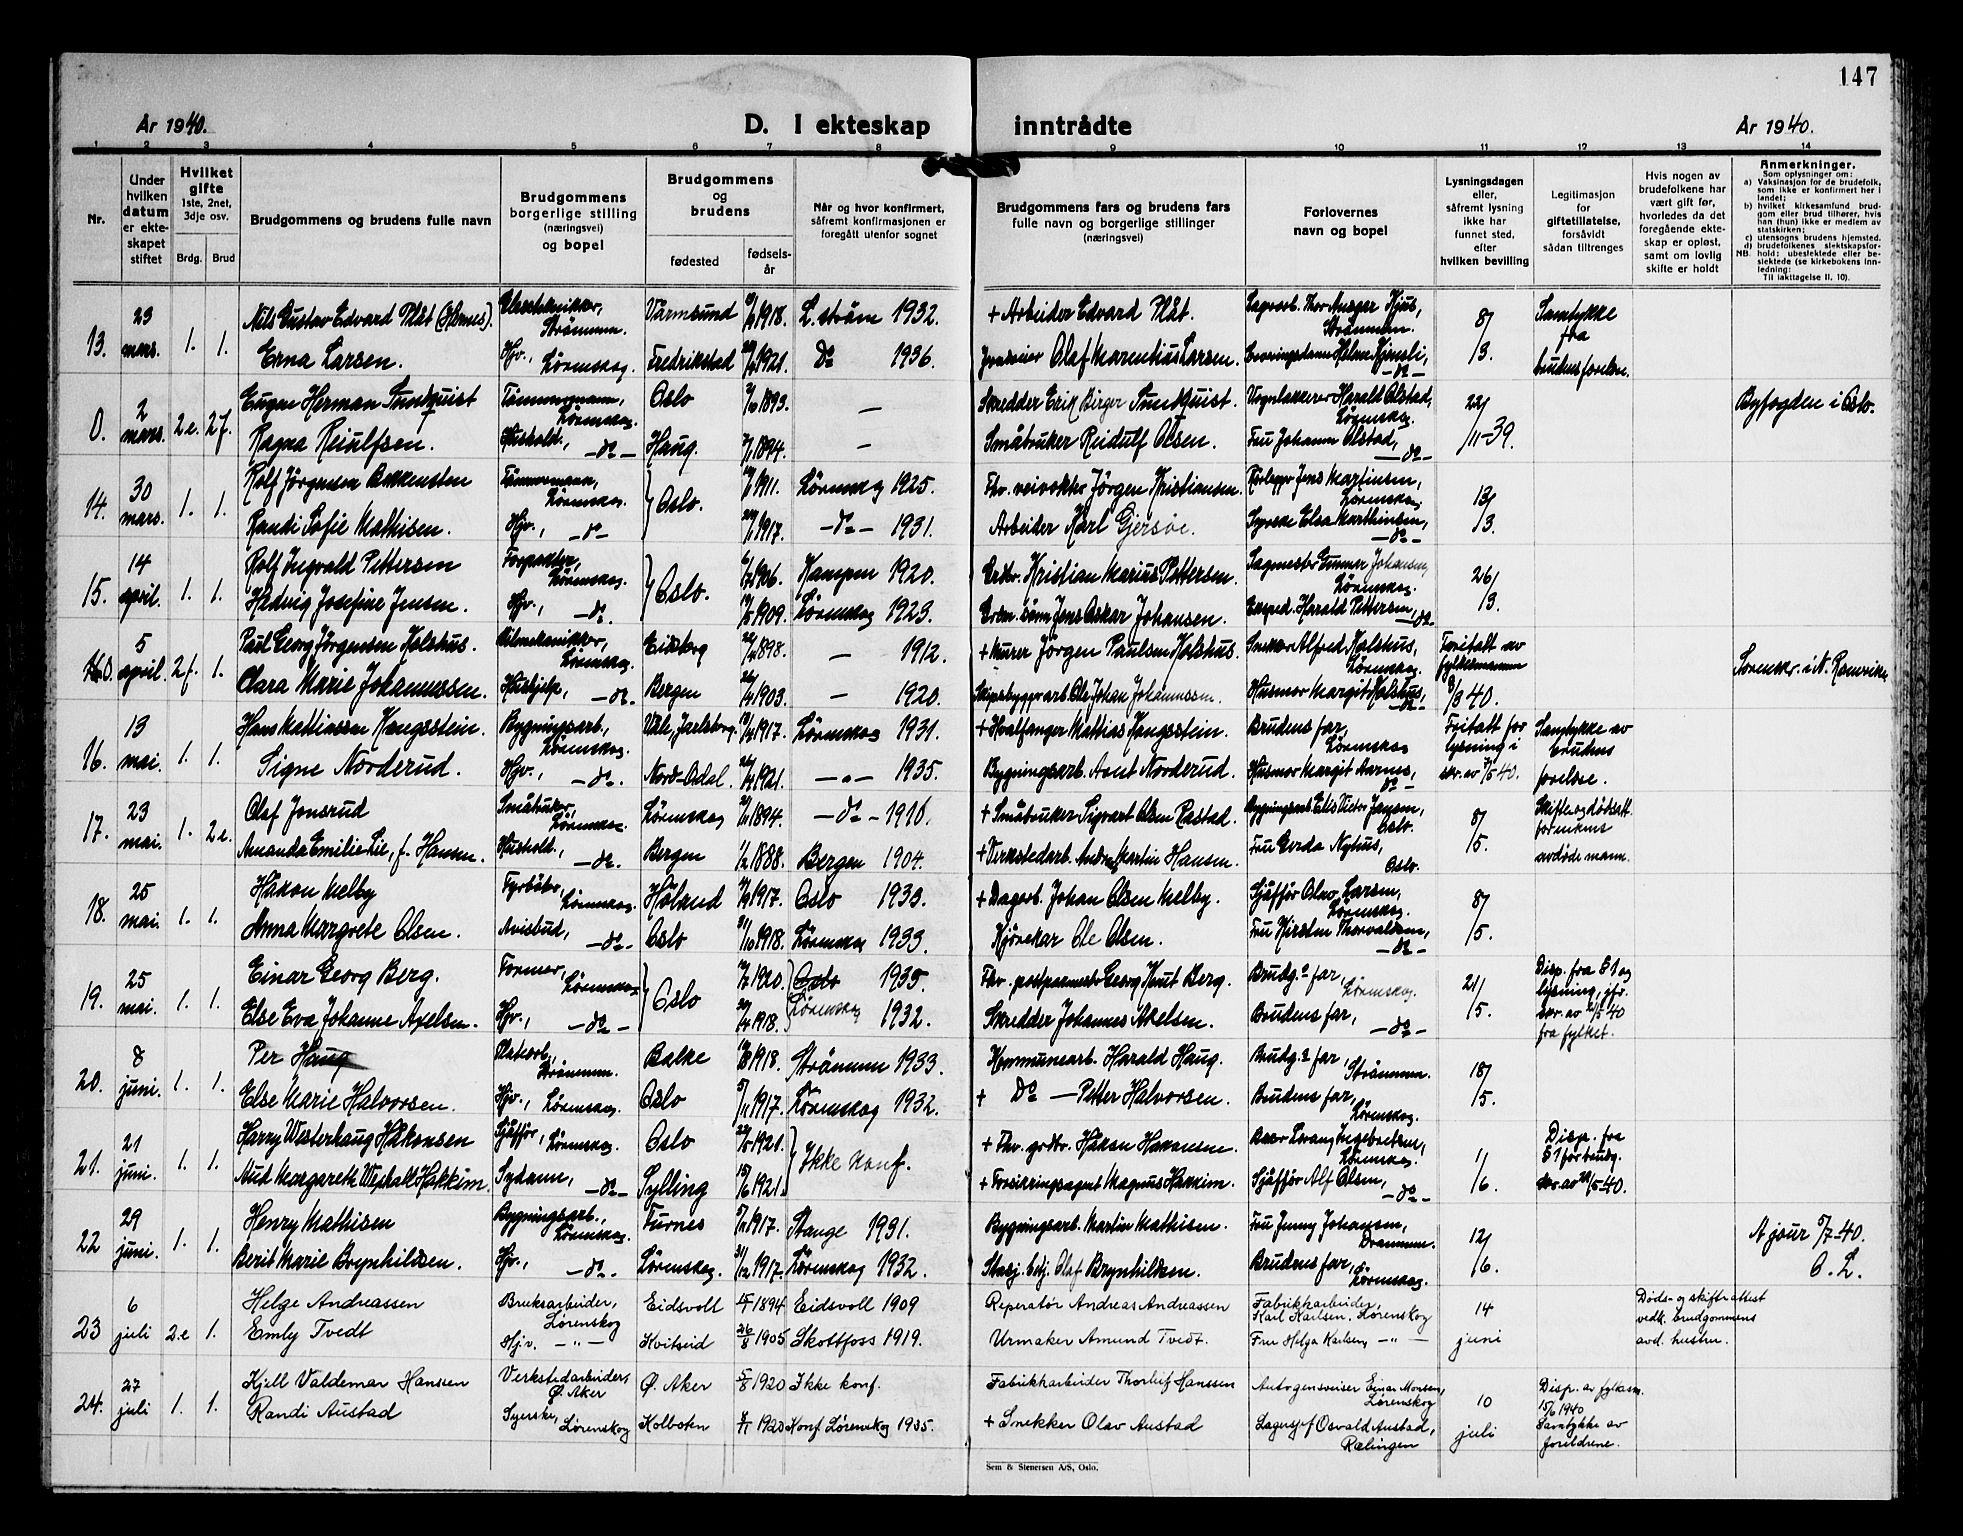 147
År 1940.
D. I ekteskap inntrådte
År 1940.
1 2 3 4 5 6 7 8 9 10 11 12 13 14
Nr.
Under hvilken datum er ekteskapet stiftet
Hvilket gifte 1ste, 2net, 3dje osv.
Brdg. Brud
Brudgommens og brudens fulle navn
Brudgommens borgerlige stilling (næringsvei) og bopel
Brudgommens og brudens
fødested
fødselsår
Når og hvor konfirmert, såfremt konfirmasjonen er foregått utenfor sognet
Brudgommens fars og brudens fars fulle navn og borgerlige stillinger (næringsvei)
Forlovernes navn og bopel
Lysningsdagen eller, såfremt lysning ikke har funnet sted, efter hvilken bevilling
Legitimasjon for giftetillatelse, forsåvidt sådan tiltrenges
Hvis nogen av brudefolkene har vært gift før, hvorledes da det foregående ekteskap er opløst, samt om lovlig skifte er holdt
Anmerkninger.
Som oplysninger om:
a) Vaksinasjon for de brudefolk, som ikke er konfirmert her i landet;
b) hvilket kirkesamfund brudgom eller brud tilhører, hvis han (hun) ikke er medlem av statskirken;
c) utensogns brudens hjemsted.
d) brudefolkenes slektskapsforhold: ubeslektede eller beslektede (se kirkebokens innledning:
NB. Til iakttagelse II. 10).
13. 23 mars. 1. 1. Nils Gustav Edvard Plåt (Hemnes). Strømmen. Värmsund 1918. L. strøm 1932. + Arbeider Edvard Plåt. Strømmen. 8/3. Samtykke fra
Erna Larsen. Hjv., Lørenskog. Fredrikstad 1921. Do 1936. Olaf Marentius Larsen. -do- brudens foreldre.
0. 2 mars. 2 e. 2 f. Eugen Herman Sundquist Tømmermann, Lørenskog. Oslo 1893. — Skredder Erik Birger Sundquist. Vognlakkerer Harald Olstad, Lørenskog. 22/11-39. Byfogden i Oslo.
Ragna Reiulfsen. Hushold., -do- Haug. 1894. — Småbruker Reidulf Olsen. Fru Johanna Olstad, -do-
14. 30 mars. 1. 1. Rolf Jørgensen Bakkensten Tømmermann, Lørenskog. Oslo. 1911. Lørenskog 1925. Fhv. veivokter Jörgen Kristiansen. Jens Martinsen, Lørenskog, 13/3.
Randi Sofie Mathisen. Hjv., -do- 1917. -do- 1931. Arbeider Karl Gjersøe. Syerske Elsa Marthinsen, -do-
15. 14 april. 1. 1. Rolf Ingvald Pettersen Lørenskog. Oslo. 1906. Kampen 1920. Kristian Marius Pettersen. Gunnar Johansen, Lørenskog. 26/3.
Hedvig Josefine Jensen. Hjv., -do. 1909. Lørenskog 1923. Jens Oskar Johansen. Eksped. Harald Pettersen, -do-
0. 5 april. 2 f. 1. Paul Georg Jørgensen Holshus. Bilmekanikker, Lørenskog. Eidsberg 1898. — 1912. + Murer Jörgen Paulsen Holshus. Snekker Alfred Holshus, Lørenskog. Fritatt av fylkesmannen 8/3 40. Sorenskr. i N. Romerike
Clara Marie Johannessen. Hushjelp, -do. Bergen 1903. — 1920. Skipsbyggerarb. Ole Johan Johannessen. Husmor Margit Holshus, -do-
16. 13 mai. 1. 1. Hans Mathiassen Haugsstein. Bygningsarb., Lørenskog. Våle, Jarlsberg. 1917. Lørenskog 1931. + Hvalfanger Mathias Haugsstein. Brudens far, Lørenskog Fritatt for lysning i skr. av 7/5 40. Samtykke av brudens foreldre.
Signe Norderud. Hjv., -do. Nord-Odal. 1921. -„- 1935. Bygningsarb. Arnt Norderud. Husmor Margit Aarnes, do-
17. 23 mai. 1. 2 e. Olaf Jonsrud Småbruker, Lørenskog. Lørenskog 1894. -do- 1910. + Småbruker Sigvart Olsen Rastad. Bygningsarb. Elis Victor Jansen, Oslo. 8/5. Skifte og dødsatt. for enkens avdøde mann.
Amanda Emilie Lie, f. Hansen. Hushold., -do. Bergen 1/2 1888. Bergen 1904. + Verkstedarb. Andreas Martin Hansen. Fru Gerda Nyhus, Oslo.
18. 25 mai. 1. 1. Håkon Melby Fyrbøter, Lørenskog. Høland 1917. Oslo 1933. + Dagarb. Johan Olsen Melby. Sjåffør Olav Larsen, Lørenskog. 8/5.
Anna Margrete Olsen. Avisbud, -do- Oslo 1918. Lørenskog 1933. Kjørekar Ole Olsen. Fru Kirsten Thorvaldsen, -do-
19. 25 mai. 1. 1. Einar Georg Berg. Former, Lørenskog Oslo 1920. Oslo 1935. Fhv. postpasmester Georg Knut Berg. Brudg.s far, Lørenskog. 21/5. Disp. fra § 1 og lysning, jfr. skr. av 21/5 40 fra fylket.
Else Eva Johanne Axelsen. Hjv., -do- 1918. Lørenskog 1932. Skredder Johannes Axelsen. Brudens far, -do-
20. 8 juni. 1. 1. Per Haug Strømmen. Balke 1918. Strømmen 1933. Kommunearb. Harald Haug. Brudg.s far, Strømmen. 18/5.
Else Marie Halvorsen. Hjv., Lørenskog. Oslo 5/11 1917. Lørenskog 1932. + Do — Petter Halvorsen. Brudens far, Lørenskog.
21. 21 juni. 1. 1. Harry Westerhaug Håkonsen Sjåffør, Lørenskog Oslo 1921. Ikke konf. + Fhv. grdbr. Håkon Hakonsen. Ingebretsen, Lørenskog. 11/6. Disp. fra § 1 for brudg. skr. av 29/5-40.
Aud Margareth Westvall Hakkim. Sydame, -do- Sylling 15/6 1921. + Forsikringsagent Magnus Hakkim. Sjåffør Alf Olsen, -do-
22 29 juni. 1. 1. Henry Mathisen Bygningsarb., Lørenskog. Furnes 1917. Stange 1931. Bygningsarb. Martin Mathisen. Fru Jenny Johansen, Drammen. 12/6. A jour 5/7-40.
Berit Marie Brynhildsen. Hjv., -do-. Lørenskog. 31/12 1917. Lørenskog 1932. Stasj. betj. Olaf Brynhildsen. Brudens far, Lørenskog. O. L.
23 6 juli 2. e 1. Helge Andreassen Bruksarbeider, Lørenskog Eidsvoll 1894 Eidsvoll 1909 Reperatør Andreas Andreassen Fabrikkarbeider, Karl Karlsen, Lørenskog 14 juni Døds- og skifteattest vedk. brudgommens avd. hustru.
Emly Tvedt Hjv. — „ — Kvitseid 26/8 1905 Skotfoss 1919. Urmaker Amund Tvedt. Fru Helga Karlsen, — „ —
24. 27 juli 1. 1. Kjell Valdemar Hansen Verkstedarbeider, Ø. Aker Ø. Aker 5/8 1920 Ikke konf. Fabrikkarbeider Thorleif Hanssen Autogensveiser Einar Monsen, Lørenskog 10 juli Disp. av fylkesm. 15/6 1940
Randi Austad Syerske, Lørenskog Kolbotn 1920 Konf. Lørenskog 1935. + Snekker Olav Austad Lagersjef Osvald Austad, Rælingen Samtykke av foreldrene.
Sem & Stenersen A/S, Oslo.